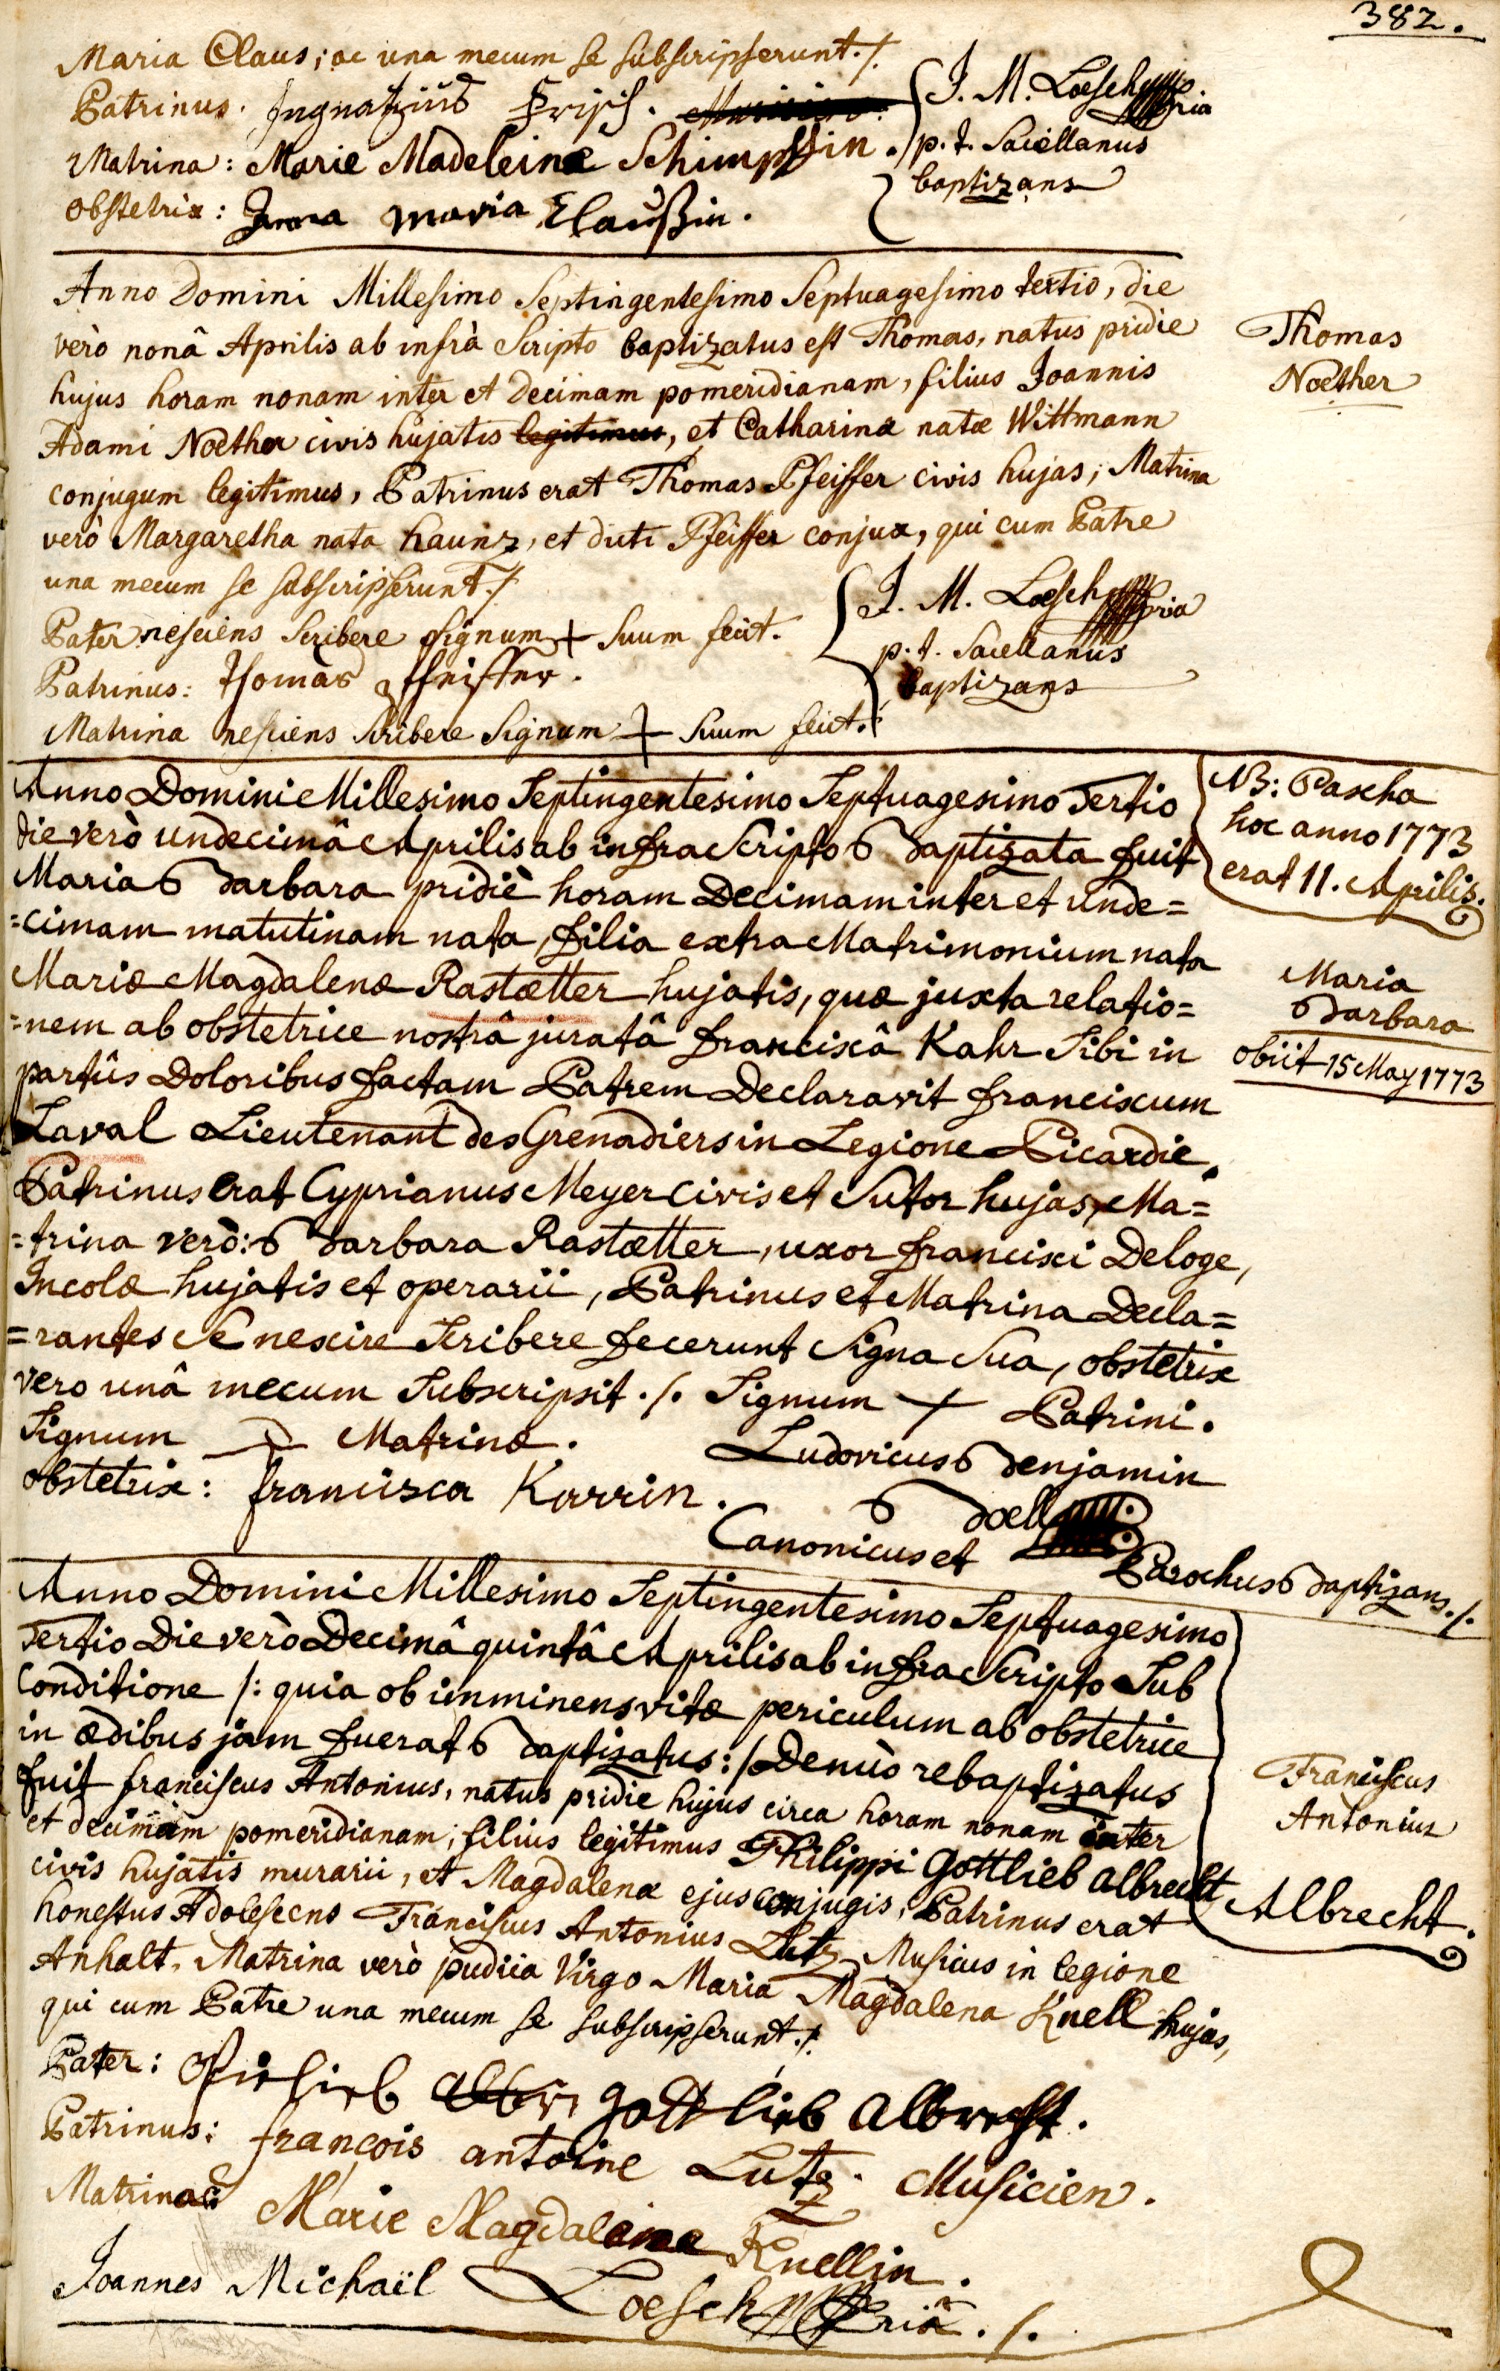 382.
Maria Claus; ac una mecum se subscripserunt ./.
Patrinus. Ingnatzius Frisch.
Matrina: Marie Madeleine Schimpffin.
obstetrix: Anna Maria Claußin.
J. M. Loesch mpria
p. t. Sacellanus
baptizans
Anno Domini Millesimo Septingentesimo Septuagesimo tertio, die
verò nonâ Aprilis ab infrà Scripto baptizatus est Thomas, natus pridie
hujus horam nonam inter et decimam pomeridianam, filius Joannis
Adami Noether civis hujatis legitimus, et Catharinæ natæ Wittmann
conjugum legitimus, Patrinus erat Thomas Pfeiffer civis hujas; Matrina
verò Margaretha nata Haunz, et dicti Pfeiffer conjux, qui cum Patre
una mecum se subscripserunt ./.
Pater nesciens Scribere Signum + Suum fecit.
Patrinus: Thomas Pfeiffer.
Matrina nesciens Scribere Signum + Suum fecit.
J. M. Loesch mpria
p. t. Sacellanus
baptizans
Thomas
Noether
Anno Domini Millesimo Septingentesimo Septuagesimo Tertio
die verò undecimâ Aprilis ab infra Scripto Baptizata fuit
Maria Barbara pridiè horam Decimam inter et unde=
=cimam matutinam nata, filia extra Matrimonium nata
Mariæ Magdalenæ Rastætter hujatis, quæ juxta relatio=
=nem ab obstetrice nostrâ juratâ franciscâ Kahr Sibi in
partûs Doloribus factam Patrem Declaravit franciscum
Laval Lieutenant des Grenadiers in Legione Picardie.
Patrinus Erat Cyprianus Meyer Civis et Sutor hujas, Ma=
=trina verò: Barbara Rastætter, uxor francisci Deloge,
Incolæ hujatis et operarii, Patrinus et Matrina Decla=
=rantes Se nescire Scribere fecerunt Signa Sua, obstetrix
vero unâ mecum Subscripsit ./. Signum + Patrini.
Signum + Matrinæ.
Ludovicus Benjamin
obstetrix: francisca Karrin.
Boell
Canonicus et Parochus Baptizans ./.
NB: Pascha
hoc anno 1773
erat 11. Aprilis.
Maria
Barbara
obiit 15 May 1773
Anno Domini Millesimo Septingentesimo Septuagesimo
Tertio Die verò Decimâ quintâ Aprilis ab infra Scripto Sub
Conditione /: quia ob imminens vitæ periculum ab obstetrice
in ædibus jam fuerat Baptizatus :/ Denuò rebaptizatus
fuit franciscus Antonius, natus pridie hujus circa horam nonam inter
et decimam pomeridianam; filius legitimus Philippi Gottlieb Albrecht
civis hujatis murarii, et Magdalenæ ejus conjugis, Patrinus erat
honestus Adolescens Franciscus Antonius Lutz Musicus in legione
Anhalt, Matrina verò pudica Virgo Maria Magdalena Knell hujas,
qui cum Patre una mecum se subscripserunt ./.
Franciscus
Antonius
Albrecht.
Pater: gottlieb albrecht.
Patrinus: françois antoine Lutz. Musicien.
Matrina: Marie Magdaleine Knellin.
Joannes Michaël Loesch mpriâ ./.